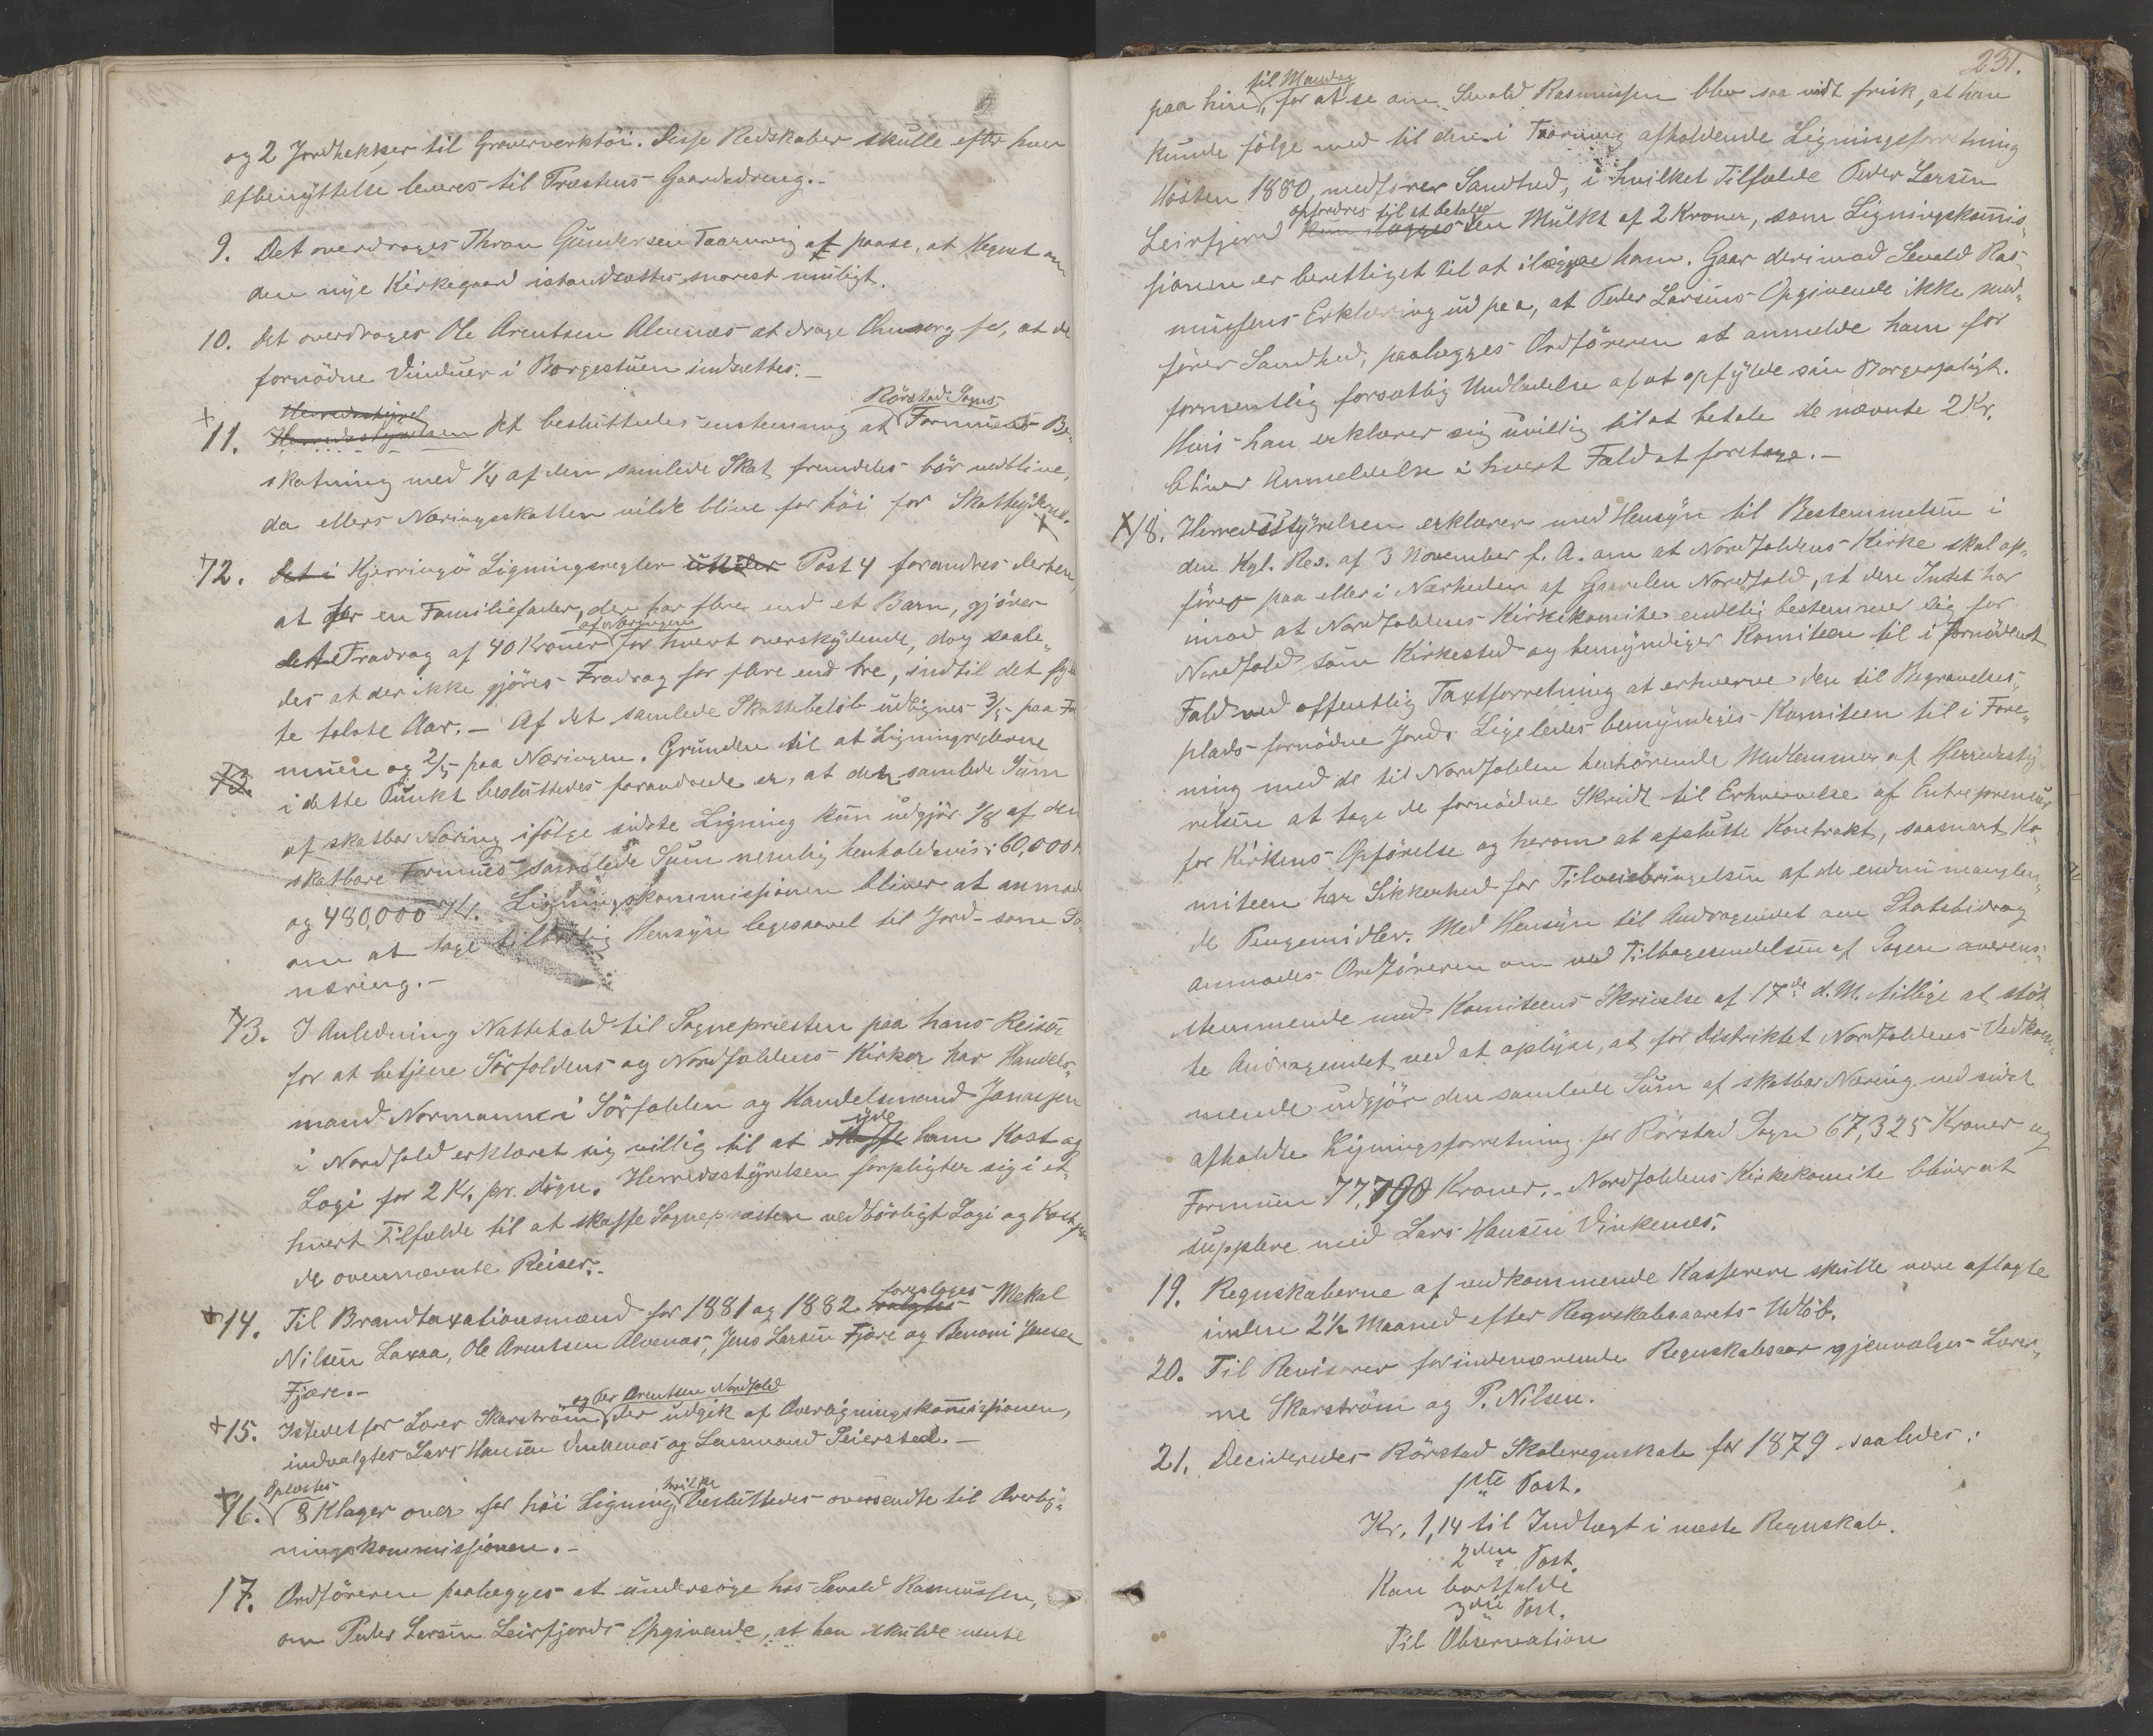 og 2 Jordhakker til Graververktöi. Disse Redskaber skulle efter hver
Afbenyttelse leveres til Præstens Gaardsdreng.-
9. Det overdroges Thron Gundersen Taarnvig at paase, at Hegnet om
den nye Kirkegaard istandsættes snarest muligt.
10. Det overdroges Ole Arentsen Alvenæs at drage Omsorg for, at de
fornödne Vinduer i Borgestuen indsættes.-
Rörstad Sogns
+ 11. Herredsstyrelsen Det besluttedes enstemmig at Formues Be-
skatning med 1/4 af den samlede Skat fremdeles bör vedblive,
da ellers Næringsskatten vilde blive for höi for Skatteyderne.
+ 12. Det i Kjerringö Ligningsregler Post 4 forandres derhen,
at for en Familiefader, der har flere end et Barn, gjöres
af Næringen
dette Fradrag af 40 Kroner for hvert overskydende, dog saale-
des at der ikke gjöres Fradrag for flere end tre, indtil det fyld
te tolvte Aar.- Af det samlede Skattebelöb udlignes 3/5 paa For
13. muen og 2/5 paa Næringen. Grunden til at Ligningsreglerne
i dette Punkt besluttedes forandrede er, at den samlede Sum
af skatbar Næring ifölge sidste Ligning kun udgjör 1/8 af den
skatbare Formues samlede Sum nemlig henholdsvis: 60,000 K
og 480,000 Kr. Ligningskommissionen bliver at anmode
om at tage tilbörlig Hensyn ligesaavel til Jord- som Sö-
næring.-
+ 13. I Anledning Nattehold til Sognepræsten paa hans Reiser
for at betjene Sörfoldens og Nordfoldens Kirker har Handels-
mand Normann i Sörfolden og Handelsmand Jonassen
yde
i Nordfold erklæret sig villig til at skaffe ham Kost og
Logi for 2 Kr. pr. Dögn. Herredsstyrelsen forpligter sig i et-
hvert Tilfælde til at skaffe Sognepræsten vedbörligt Logi og Kost paa
de ovennævnte Reiser.-
foreslages
+ 14. Til Brandtaxationsmænd for 1881 og 1882 valgtes Mekal
Nilsen Laxaa, Ole Arentsen Alvenæs, Jens Larsen Fjære og Benoni Jensen
Fjære.-
og Per Arentsen Nordfold
+ 15. Istedetfor Lærer Skarström der udgik af Overligningskommissionen,
indvalgtes Lars Hansen Vinkenæs og Lensmand Seiersted.-
Oplæstes hvilke
+ 16. 8 Klager over for höi Ligning besluttedes oversendte til Overlig-
ningskommissionen.-
17. Ordföreren paalægges at undersöge hos Sevald Rasmussen,
om Peder Larsen Leirfjords Opgivende, at han skulde vente
231.
til Mandag
paa hin, for at se om Sevald Rasmussen blev saa vidt frisk, at han
kunde fölge med til den i Tærning afholdende Ligningsforretning
Hösten 1880, medförer Sandhed, i hvilket Tilfælde Peder Larsen
opfordres til at betale
Leirfjord kun ilægges den Mulkt af 2 Kroner, som Ligningskommis-
sionen er berettiget til at ilægge ham. Gaar derimod Sevald Ras-
mussens Erklæring ud paa, at Peder Larsens Opgivende ikke med-
förer Sandhed, paalægges Ordföreren at anmelde ham for
formentlig forsætlig Undladelse af at opfylde sin Borgerpligt.
Hvis han erklærer sig uvillig til at betale de nævnte 2 Kr.
bliver Anmeldelse i hvert Fald at foretage.-
+ 18. Herredsstyrelsen erklærer med Hensyn til Bestemmelsen i
den Kgl. Res. af 3 November f. A. om at Nordfoldens Kirke skal op-
föres paa eller i Nærheden af Gaarden Nordfold, at den Intet har
imod at Nordfoldens Kirkekomite endelig bestemmer sig for
Nordfold som Kirkested og bemyndiger Komiteen til i fornödent
Fald ved offentlig Taxtforretning at erhverve den til Begravelses-
plads fornödne Jord. Ligeledes bemyndiges Komiteen til i Fore-
ning med de til Nordfolden henhörende Medlemmer af Herredssty-
relsen at tage de fornödne Skridt til Erhvervelse af Entreprenör
for Kirkens Opförelse og herom at afslutte Kontrakt, saasnart Ko-
miteen har Sikkerhed for Tilveiebringelsen af de endnu manglen-
de Pengemidler. Med Hensyn til Andragendet om Statsbidrag
anmodes Ordföreren om ved Tilbagesendelsen af Sagen overens-
stemmende med Komiteens Skrivelse af 17de d.M. tillige at stöt-
te Andragendet ved at oplyse, at for Distriktet Nordfoldens Vedkom-
mende udgjör den samlede Sum af skatbar Næring ved sidst
afholdte Ligningsforretning for Rörstad Sogn 67,325 Kroner og
Formuen 77,790 Kroner. Nordfoldens Kirkekomite bliver at
supplere med Lars Hansen Vinkenæs.
19. Regnskaberne af vedkommende Kasserere skulle være aflagte
inden 2 1/2 Maaned efter Regnskabsaarets Udlöb.
20. Til Revisorer for indeværende Regnskabsaar gjenvalges Lærer-
ne Skarström og P. Nilsen.
21. Decideredes Rörstad Skoleregnskab for 1879 saaledes:
1ste Post.
Kr. 1,14 til Indtægt i næste Regnskab.
2den Post.
Kan bortfalde
3die Post.
Til Observation